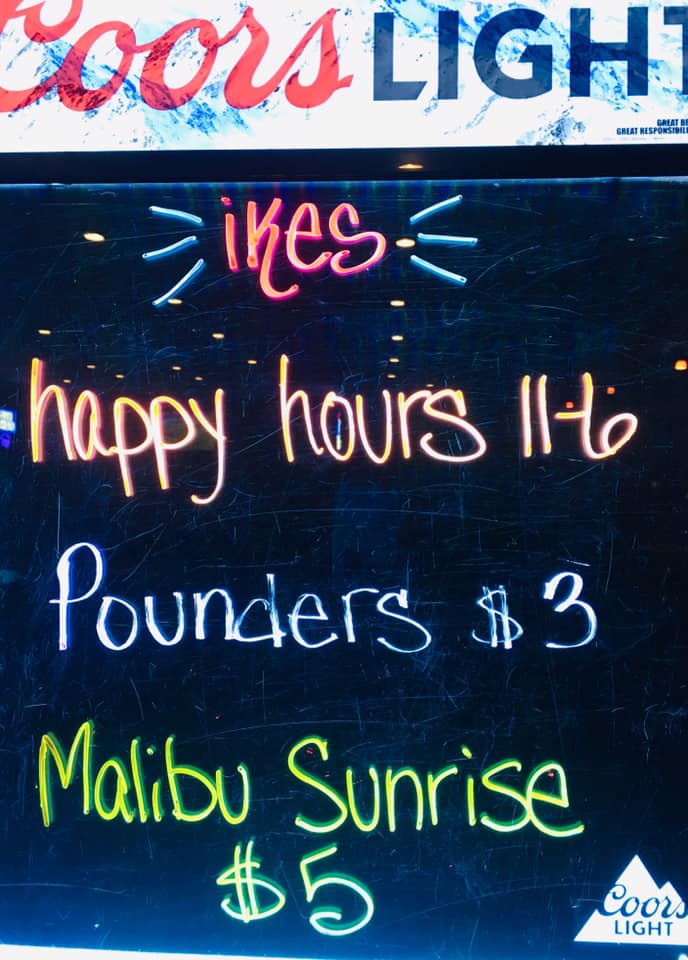 Coors LIGHT
GREAT BE
GREAT RESPONSIBILI
ikes
happy hours 11-6
Pounders $3
Malibu Sunrise
$5
Coors
LIGHT